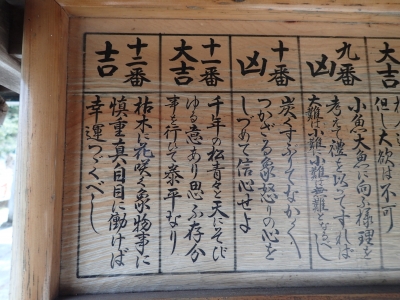 大吉
但し大欲は不可
九番
凶
小魚大魚に向ふ様理を
考えて禮を以てすれば
大難は小難小難無難となるべし
十番
凶
炭くすぶりてなかなか
つかざる象怒りの心を
しづめて信心せよ
十一番
大吉
千年の松青々と天にそび
ゆる意あり思ふ存分
事を行ひて泰平なり
十二番
吉
枯木に花咲く象物事に
慎重真面目に働けば
幸運つゞくべし